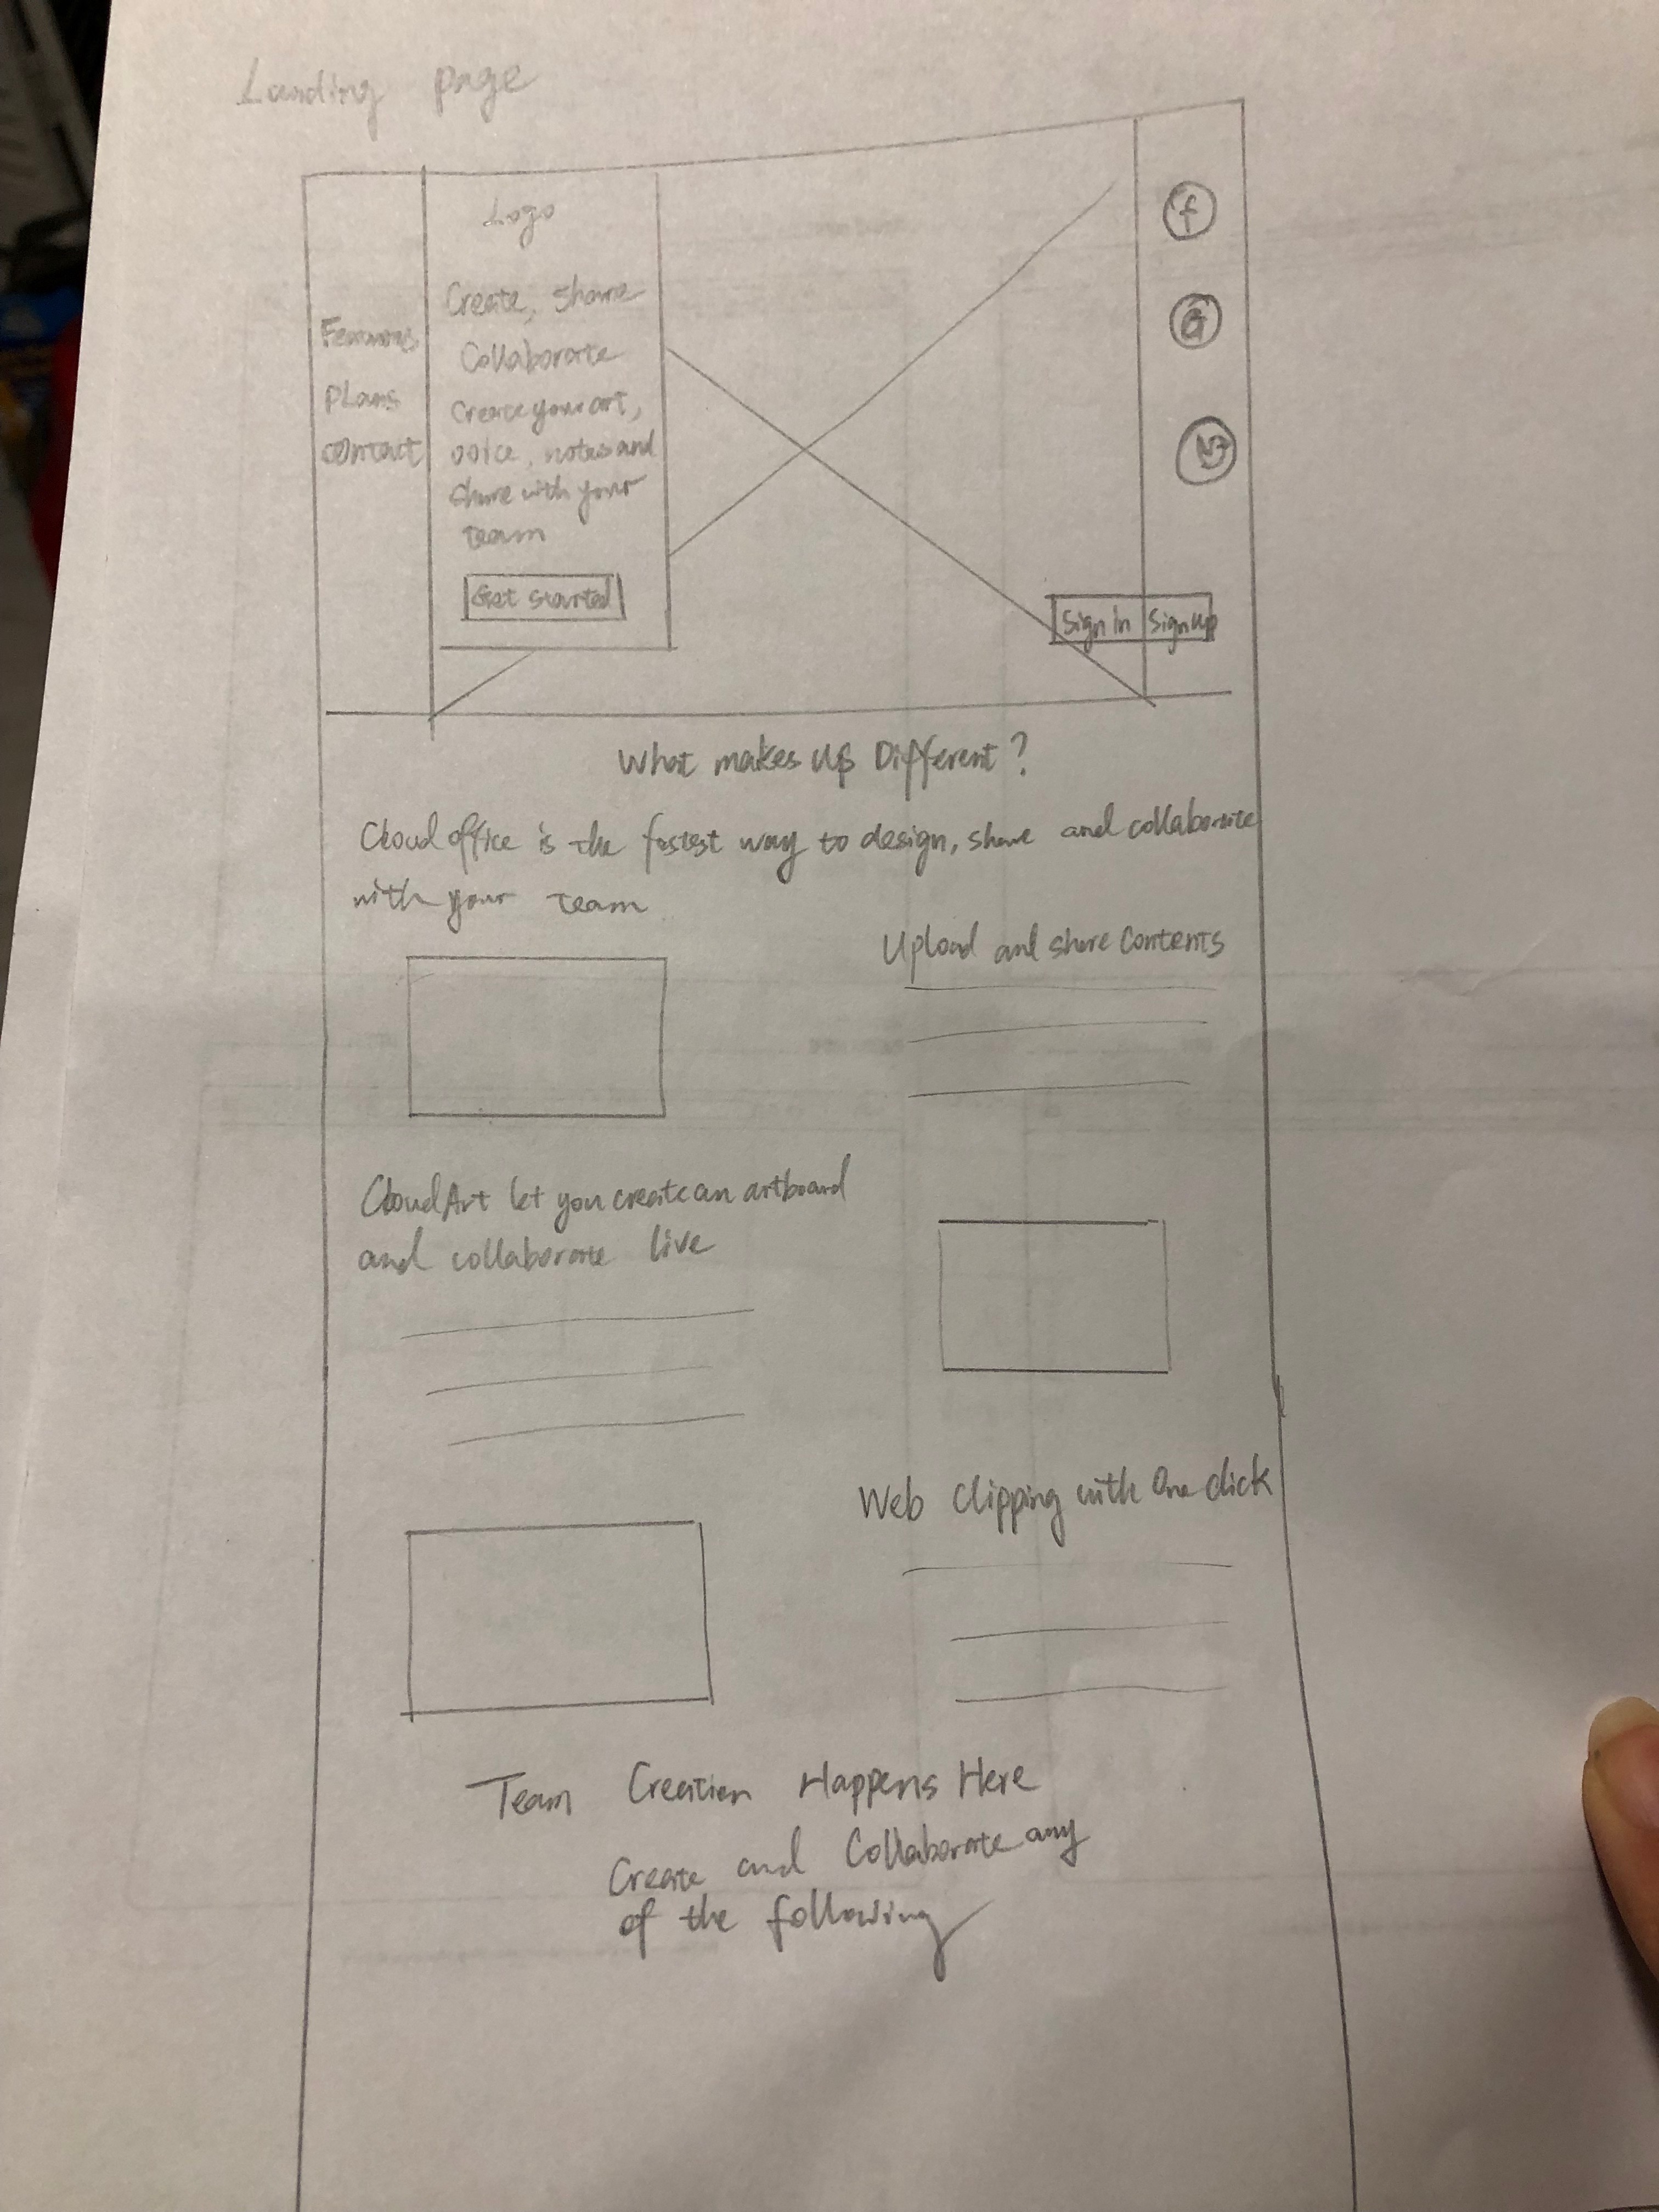 Landing page
Logo
Create, share
Collaborate
Create your art,
voice, notes and
share with your
team
Get started
Features
Plans
contact
f
G
Sign In
Sign up
What makes Us Different?
Cloud office is the fastest way to design, share and collaborate
with your team
Upload and share Contents
Cloud Art let you create an artboard
and collaborate live
Web Clipping with One click
Team Creation Happens Here
Create and Collaborate any
of the following